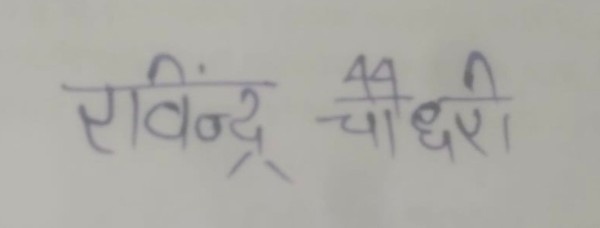 रविंन्द्र चौधरी